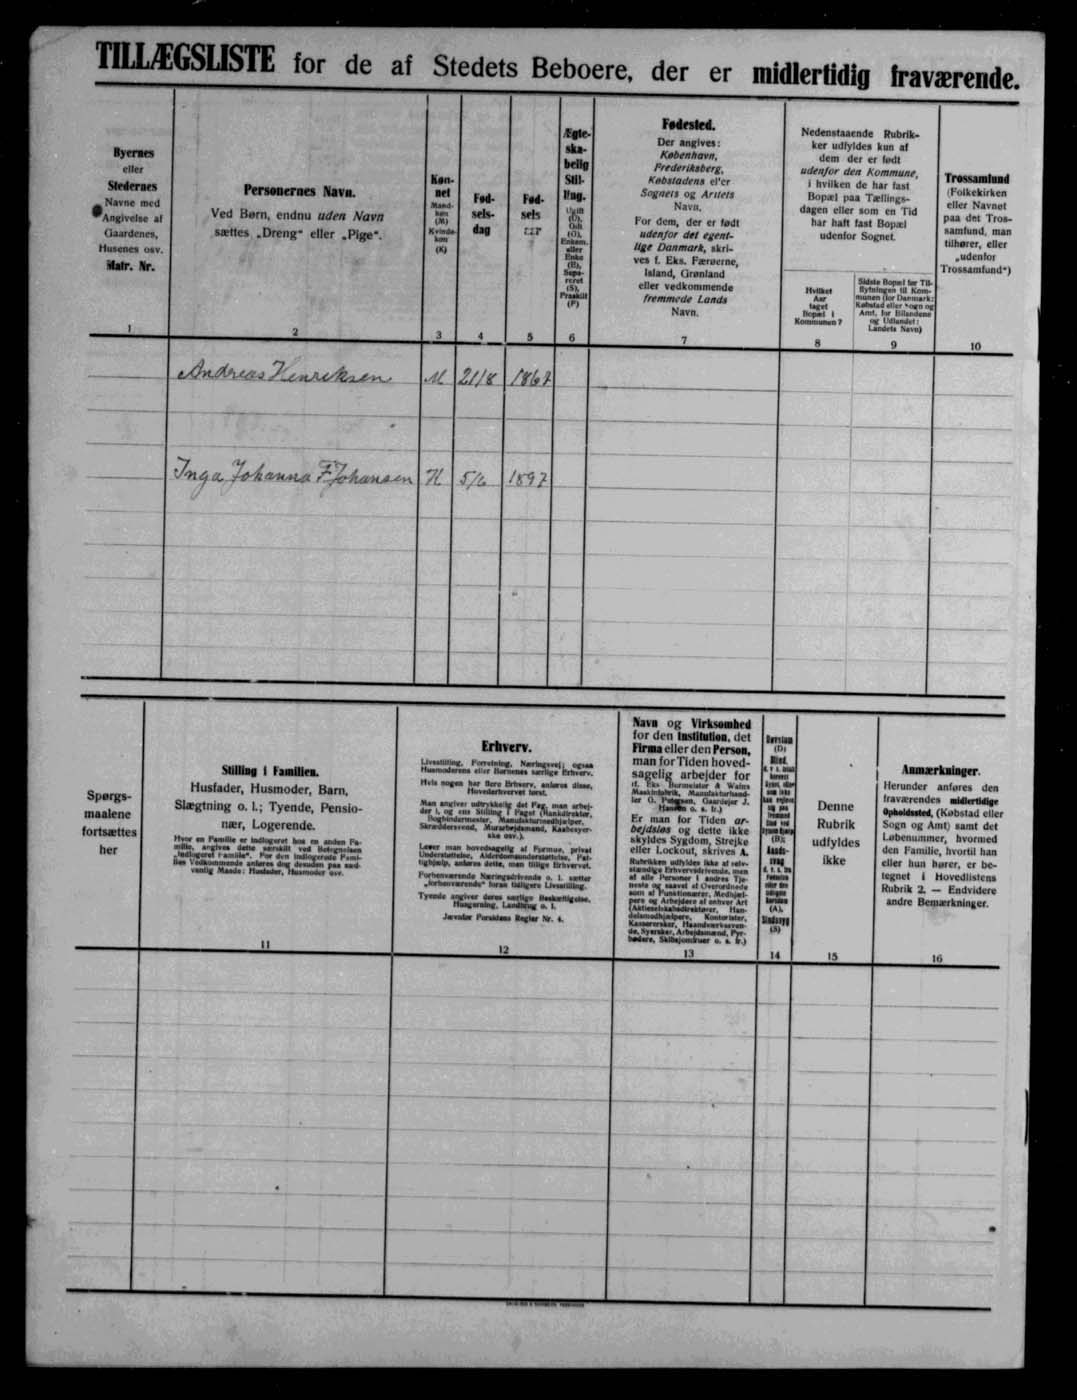 TILLÆGSLISTE for de af Stedets Beboere, der er midlertidig fraværende.
Byernes
eller
Stedernes
Navne med
Angivelse af
Gaardenes,
Husenes osv.
Matr. Nr.
1
Personernes Navn.
Ved Børn, endnu uden Navn
sættes „Dreng“ eller „Pige“.
2
Køn-
net
Mand-
køn
(M)
Kvinde-
køn
(K)
3
Fød-
sels-
dag
4
Fød-
sels
5
Ægte-
ska-
belig
Stil-
ling.
Ugift
(U),
Gift
(G),
Enkem.
eller
Enke
(E),
Sepa-
reret
(S),
Fraskilt
(F)
6
Fødested.
Der angives:
København,
Frederiksberg,
Købstadens eller
Sognets og Amtets
Navn.
For dem, der er født
udenfor det egent-
lige Danmark, skri-
ves f. Eks. Færøerne,
Island, Grønland
eller vedkommende
fremmede Lands
Navn.
7
Nedenstaaende Rubrik-
ker udfyldes kun af
dem der er født
udenfor den Kommune,
i hvilken de har fast
Bopæl paa Tællings-
dagen eller som en Tid
har haft fast Bopæl
udenfor Sognet.
Hvilket
Aar
taget
Bopæl i
Kommunen?
8
Sidste Bopæl før Til-
flytningen til Kom-
munen (for Danmark:
Købstad eller Sogn og
Amt, for Bilandene
og Udlandet:
Landets Navn)
9
Trossamfund
(Folkekirken
eller Navnet
paa det Tros-
samfund, man
tilhører, eller
„udenfor
Trossamfund“)
10
Andreas Henriksen M 21/8 1867
Inga Johanna F Johansen K 5/6 1897
Spørgs-
maalene
fortsættes
her
Stilling i Familien.
Husfader, Husmoder, Barn,
Slægtning o. l.; Tyende, Pensio-
nær, Logerende.
Hvor en Familie er indlogeret hos en anden Fa-
milie, angives dette særskilt ved Betegnelsen
„indlogeret Familie“. For den indlogerede Fami-
lies Vedkommende anføres dog desuden paa sæd-
vanlig Maade: Husfader, Husmoder osv.
11
Erhverv.
Livsstilling, Forretning, Næringsvej; ogsaa
Husmoderens eller Børnenes særlige Erhverv.
Hvis nogen har flere Erhverv, anføres disse,
Hovederhvervet først.
Man angiver udtrykkelig det Fag, man arbej-
der i, og ens Stilling i Faget (Bankdirektør,
Bogbindermester, Manufakturmedhjælper,
Skræddersvend, Murarbejdsmand, Kaabesyer-
ske osv.).
Lever man hovedsagelig af Formue, privat
Understøttelse, Alderdomsunderstøttelse, Fat-
tighjælp, anføres dette, men tillige Erhvervet.
Forhenværende Næringsdrivende o. l. sætter
„forhenværende“ foran tidligere Livsstilling.
Tyende angiver deres særlige Beskæftigelse,
Husgerning, Landbrug o. l.
Jævnfør Forsidens Regler Nr. 4.
12
Navn og Virksomhed
for den Institution, det
Firma eller den Person,
man for Tiden hoved-
sagelig arbejder for
(f. Eks. Burmeister & Wains
Maskinfabrik, Manufakturhand-
ler G. Petersen, Gaardejer J.
Hansen o. s. fr.)
Er man for Tiden ar-
bejdsløs og dette ikke
skyldes Sygdom, Strejke
eller Lockout, skrives A.
Rubrikken udfyldes ikke af selv-
stændige Erhvervsdrivende, men
af alle Personer i andres Tje-
neste og saavel af Overordnede
som af Funktionærer, Medhjæl-
pere og Arbejdere af enhver Art
(Aktieselskabsdirektører, Han-
delsmedhjælpere, Kontorister,
Kasserersker, Haandværkssven-
de, Syersker, Arbejdsmænd, Fyr-
bødere, Skibsjomfruer o. s. fr.)
13
Døvstum
(D)
Blind,
(B);
Aands-
svag
(A),
Sindssyg
(S)
14
Denne
Rubrik
udfyldes
ikke
15
Anmærkninger.
Herunder anføres den
fraværendes midlertidige
Opholdssted, (Købstad eller
Sogn og Amt) samt det
Løbenummer, hvormed
den Familie, hvortil han
eller hun hører, er be-
tegnet i Hovedlistens
Rubrik 2. — Endvidere
andre Bemærkninger.
16